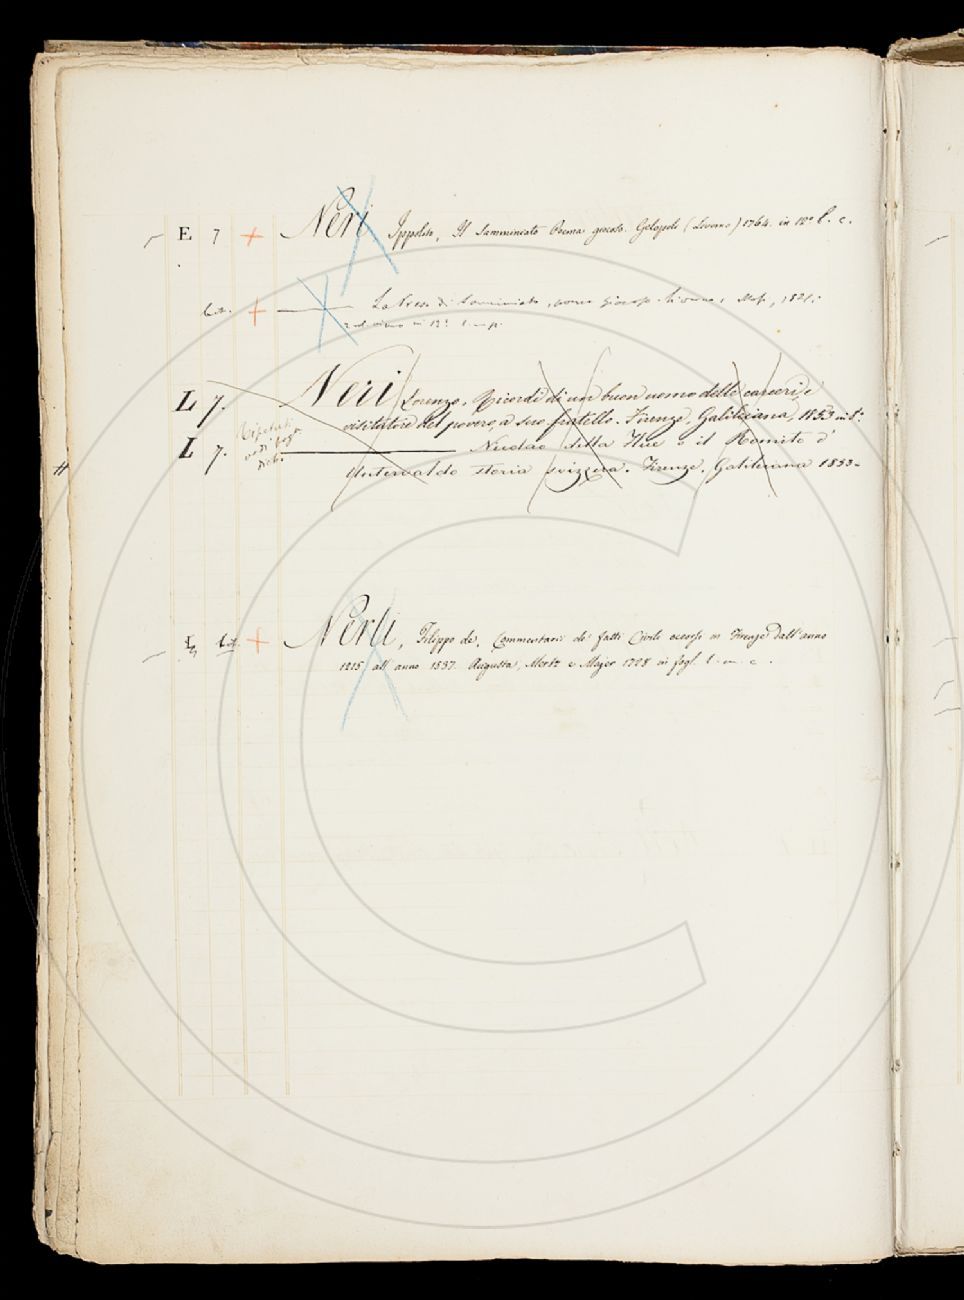 E 7 + Neri Ippolito, Il Samminiato Poema giocoso. Gelopoli (Livorno) 1764. in 12º l. c.
+ La Presa di Saminiato, poema giocoso. Livorno, Masi, 1821.
in 12º
L 7. Neri Lorenzo. Ricordi di un buon uomo delle carceri, e
visitatore del povero, a suo fratello. Firenze, Galileiana, 1853 in 8º
Ripetuti
vedi
L 7. Nicolao della Flüe o il Romito d'
Untervaldo storia svizzera. Firenze. Galileiana 1853.
+ Nerli, Filippo de', Commentari de' fatti Civili occorsi in Firenze dall'anno
1215 all'anno 1537. Augusta, Mertz e Majer 1728 in fogl. l. m. c.